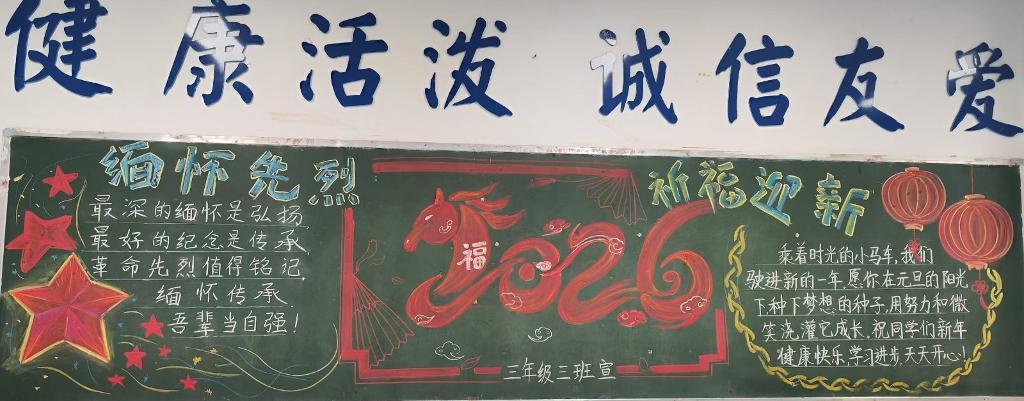 健康活泼 诚信友爱
缅怀先烈
最深的缅怀是弘扬,
最好的纪念是传承
革命先烈值得铭记
缅怀传承
吾辈当自强!
福
2026
三年级三班宣
祈福迎新
乘着时光的小马车,我们
驶进新的一年,愿你在元旦的阳光
下种下梦想的种子,用努力和微
笑浇灌它成长.祝同学们新年
健康快乐,学习进步,天天开心!